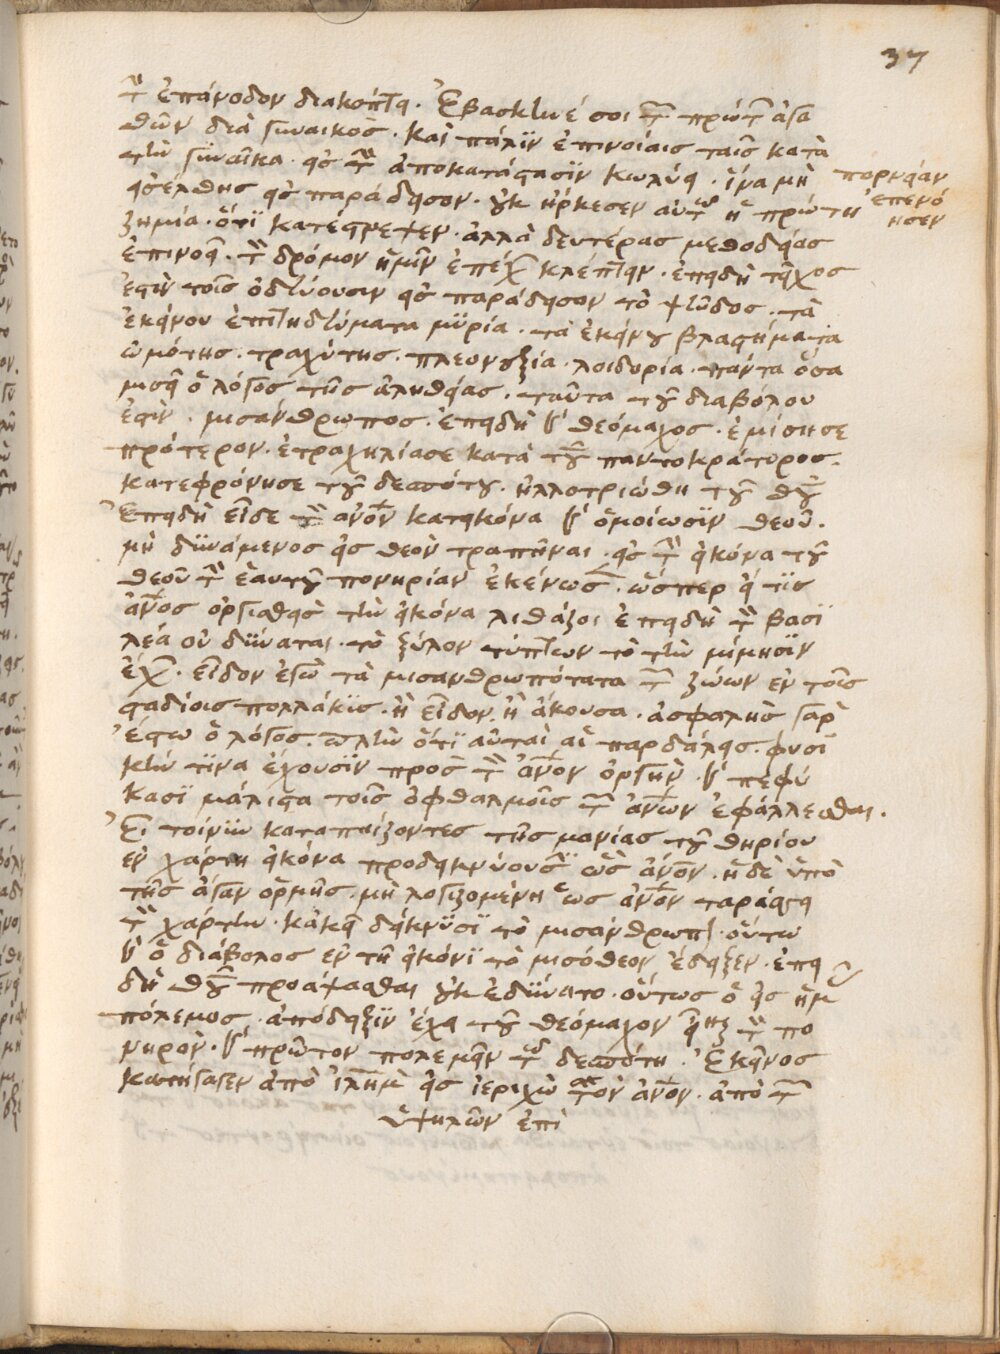 37
τὴν ἐπάνοδον διακόπτει. Ἐβάσκηνέ σοι τῶν πρώτων ἀγα
θῶν διὰ γυναικός. καὶ πάλιν ἐπινοίαις ταῖς κατὰ
τὴν γυναῖκα εἰς τὴν ἀποκατάστασιν κωλύει. ἵνα μὴ πορνείαν
εἰσέλθης εἰς παράδεισον. οὐκ ἤρκεσεν αὐτῷ ἡ πρώτη ἐπενό
ησεν
ζημία. ὅτι κατέστρεψεν. ἀλλὰ δευτέρας μεθοδείας
ἐπινοεῖ. τὸν δρόμον ἡμῖν ἐπέχειν κλέπτειν. ἐπειδὴ τεῖχος
ἐστὶν τοῖς ὁδεύουσιν εἰς παράδεισον τὸ ψεῦδος. τὰ
ἐκείνου ἐπιτηδεύματα μυρία. τὰ ἐκείνου βλαστήματα
ὠμότης. τραχύτης. πλεονεξία. λοιδορία. πάντα ὅσα
μισεῖ ὁ λόγος τῆς ἀληθείας. ταῦτα τοῦ διαβόλου
ἐστὶν. μισάνθρωπος. ἐπειδὴ καὶ θεόμαχος. ἐμίσησε
πρότερον. ἐτραχηλίασε κατὰ τοῦ παντοκράτορος.
κατεφρόνησε τοῦ δεσπότου. ἠλλοτριώθη τοῦ θεοῦ
Ἐπειδὴ εἶδε τὸν ἄνον κατεικόνα καὶ ὁμοίωσιν θεοῦ.
μὴ δυνάμενος εἰς θεὸν τραπῆναι. εἰς τὴν εἰκόνα τοῦ
θεοῦ τὴν ἑαυτοῦ πονηρίαν ἐκένωσεν. ὥσπερ εἴ τις
ἄνος ὀργισθεὶς τὴν εἰκόνα λιθάζοι ἐπειδὴ τὸν βασι
λέα οὐ δύναται. τὸ ξύλον τύπτων τὸ τὴν μίμησιν
ἔχον. εἶδον ἐγὼ τὰ μισανθρωπότατα τῶν ζώων ἐν τοῖς
σταδίοις πολλάκις. ἢ εἶδον ἢ ἄκουσα. ἀσφαλὴς γὰρ
ἔστω ὁ λόγος. πλὴν ὅτι αὗται αἱ παρδάλεις. φυσι
κήν τινα ἔχουσιν πρὸς τὸν ἄνον ὀργὴν. καὶ πεφύ
κασι μάλιστα τοῖς ὀφθαλμοῖς τῶν ἄνων ἐφάλλεσθαι.
Οἱ τοίνυν καταπαίζοντες τῆς μανίας τοῦ θηρίου
ἐν χάρτη εἰκόνα προδεικνύουσιν ὡς ἄνον. ἡ δὲ ὑπὸ
τῆς ἄγαν ὁρμῆς. μὴ λογιζομένη ὡς ἄνον ταράσσει
τὸν χάρτην. κἀκεῖ δείκνυσι τὸ μισάνθρωπον. οὕτω
καὶ ὁ διάβολος ἐν τῆ εἰκόνι τὸ μισόθεον ἔδειξεν. ἐπει
δὴ θεοῦ προσάψασθαι οὐκ ἐδύνατο. οὕτως ὁ εἰς ἡμᾶς
πόλεμος. ἀπόδειξιν ἔχει τοῦ θεόμαχον εἶναι τὸν πο
νηρὸν. καὶ πρῶτον πολεμεῖν τῷ δεσπότη. Ἐκεῖνος
κατήγαγεν ἀπὸ ἰλημ εἰς ἱεριχὼ τὸν ἄνον. ἀπὸ τῶν
ὑψηλῶν ἐπὶ